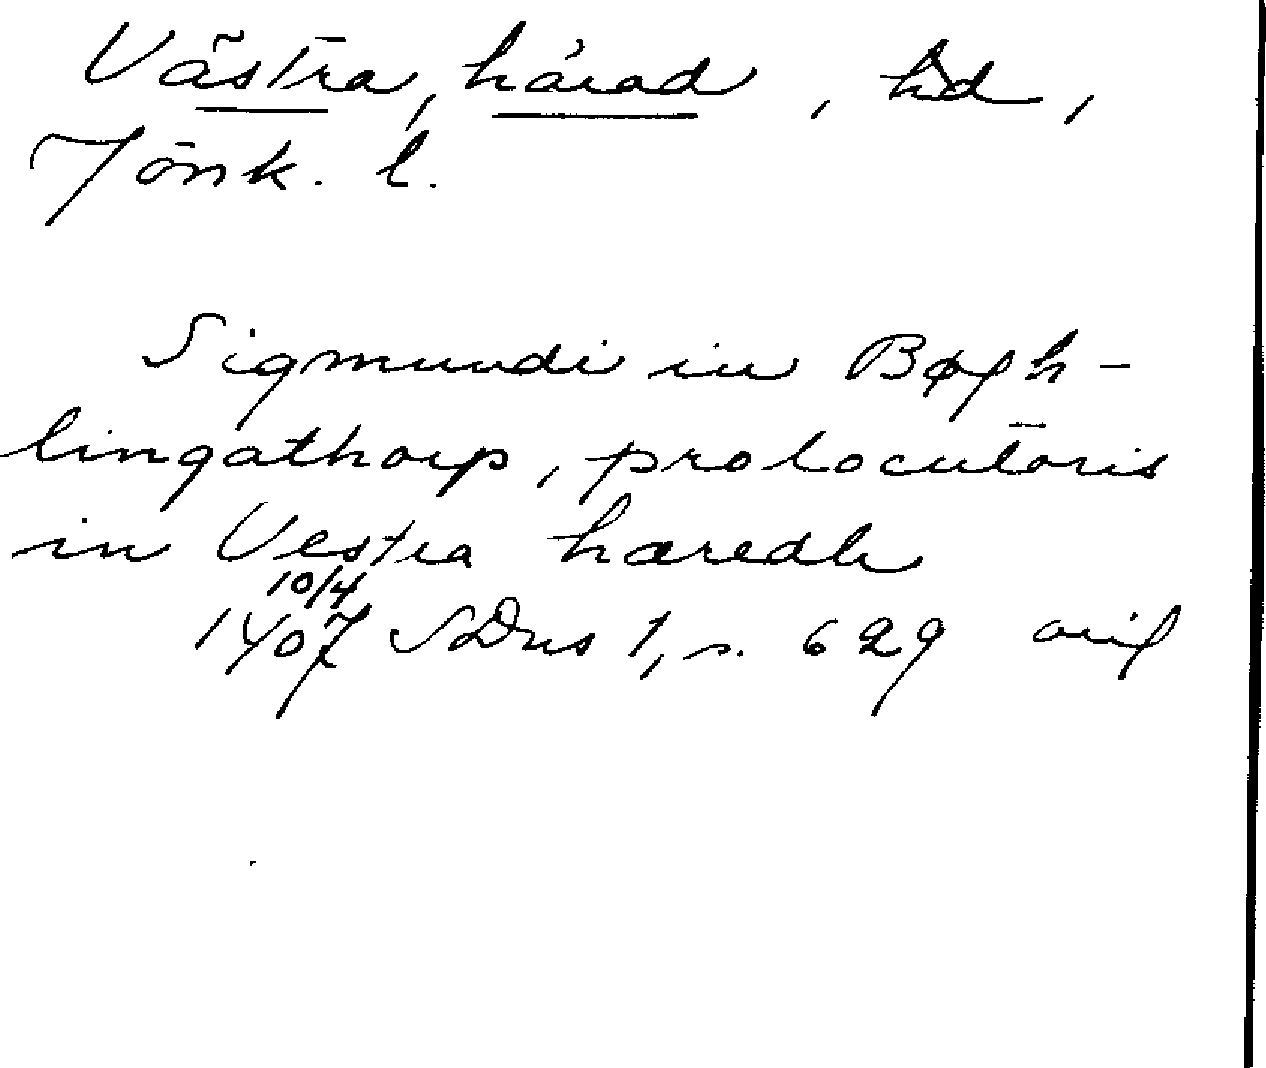 Västra, härad, hd,
Jönk. l.
Sigmundi in Bøgh-
lingathorp, prolocutoris
in Vestra hæredh
10/4
1407 SDns 1, s. 629 orig